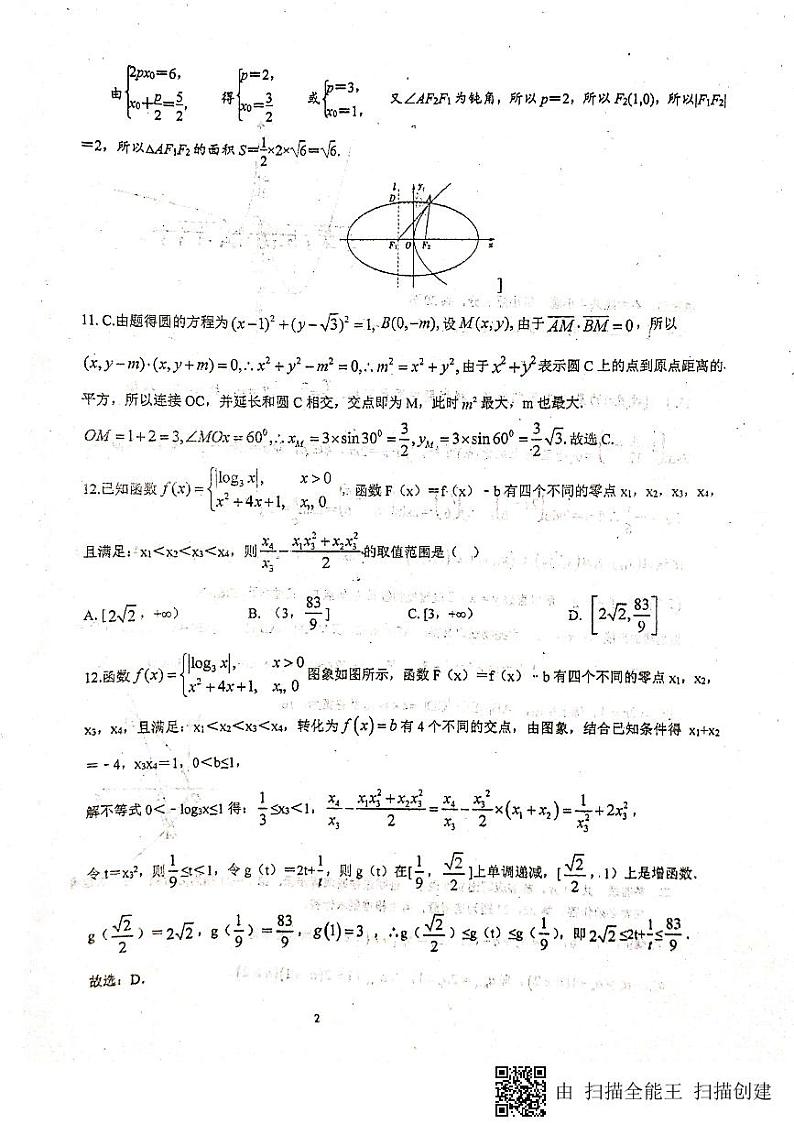 由{2px₀=6, x₀+p/2=5/2, 得{p=2, x₀=3/2 或{p=3, x₀=1, 又∠AF₂F₁为钝角，所以 p=2，所以 F₂(1,0)，所以|F₁F₂|
=2，所以△AF₁F₂的面积 S=1/2×2×√6=√6.
l y A
D
F₁ O F₂ x
]
11. C.由题得圆的方程为(x−1)²+(y−√3)²=1, B(0,−m),设 M(x,y),由于 AM·BM=0，所以
(x,y−m)·(x,y+m)=0,∴x²+y²−m²=0,∴m²=x²+y²,由于x²+y²表示圆 C 上的点到原点距离的
平方，所以连接 OC，并延长和圆 C 相交，交点即为 M，此时 m²最大，m 也最大.
OM=1+2=3,∠MOx=60⁰,∴x_M=3×sin30⁰=3/2,y_M=3×sin60⁰=3/2√3.故选 C.
12.已知函数 f(x)={|log₃x|, x>0 x²+4x+1, x„0 ，函数 F（x）=f（x）﹣b 有四个不同的零点 x₁，x₂，x₃，x₄，
且满足：x₁＜x₂＜x₃＜x₄，则 x₄/x₃−(x₁x₃²+x₂x₃²)/2 的取值范围是（ ）
A. [2√2，+∞） B.（3，83/9] C. [3，+∞） D. [2√2,83/9]
12.函数 f(x)={|log₃x|, x>0 x²+4x+1, x„0 图象如图所示，函数 F（x）=f（x）﹣b 有四个不同的零点 x₁，x₂，
x₃，x₄，且满足：x₁＜x₂＜x₃＜x₄，转化为 f(x)=b 有 4 个不同的交点，由图象，结合已知条件得 x₁+x₂
=﹣4，x₃x₄=1，0＜b≤1，
解不等式 0＜﹣log₃x≤1 得：1/3≤x₃＜1，x₄/x₃−(x₁x₃²+x₂x₃²)/2=x₄/x₃−x₃²/2×(x₁+x₂)=1/x₃²+2x₃²，
令 t=x₃²，则1/9≤t≤1，令 g（t）=2t+1/t，则 g（t）在[1/9，√2/2]上单调递减，[√2/2，1）上是增函数.
g（√2/2）=2√2，g（1/9）=83/9，g(1)=3，∴g（√2/2）≤g（t）≤g（1/9），即 2√2≤2t+1/t≤83/9．
故选：D．
2
由 扫描全能王 扫描创建